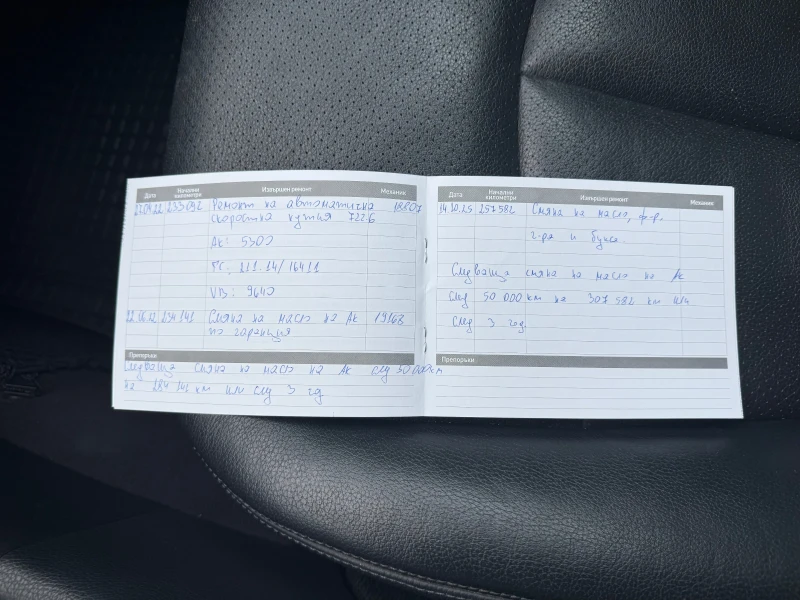 Дата Начални километри Извършен ремонт Механик
27.04.22 233692 Ремонт на автоматична 18807
скоростна кутия 722.6
Ак: 5300
ГС: 211.14/16411
VB: 9640
22.06.12 234141 Смяна на масло на Ак 19168
по гаранция
Препоръки
Следваща смяна на масло на Ак след 50 000 км
на 284 141 км или след 3 год
Дата Начални километри Извършен ремонт Механик
14.10.25 257582 Смяна на масло, ф-р,
г-ра и букса
Следваща смяна на масло на Ак
след 50 000 км на 307 582 км или
след 3 год.
Препоръки